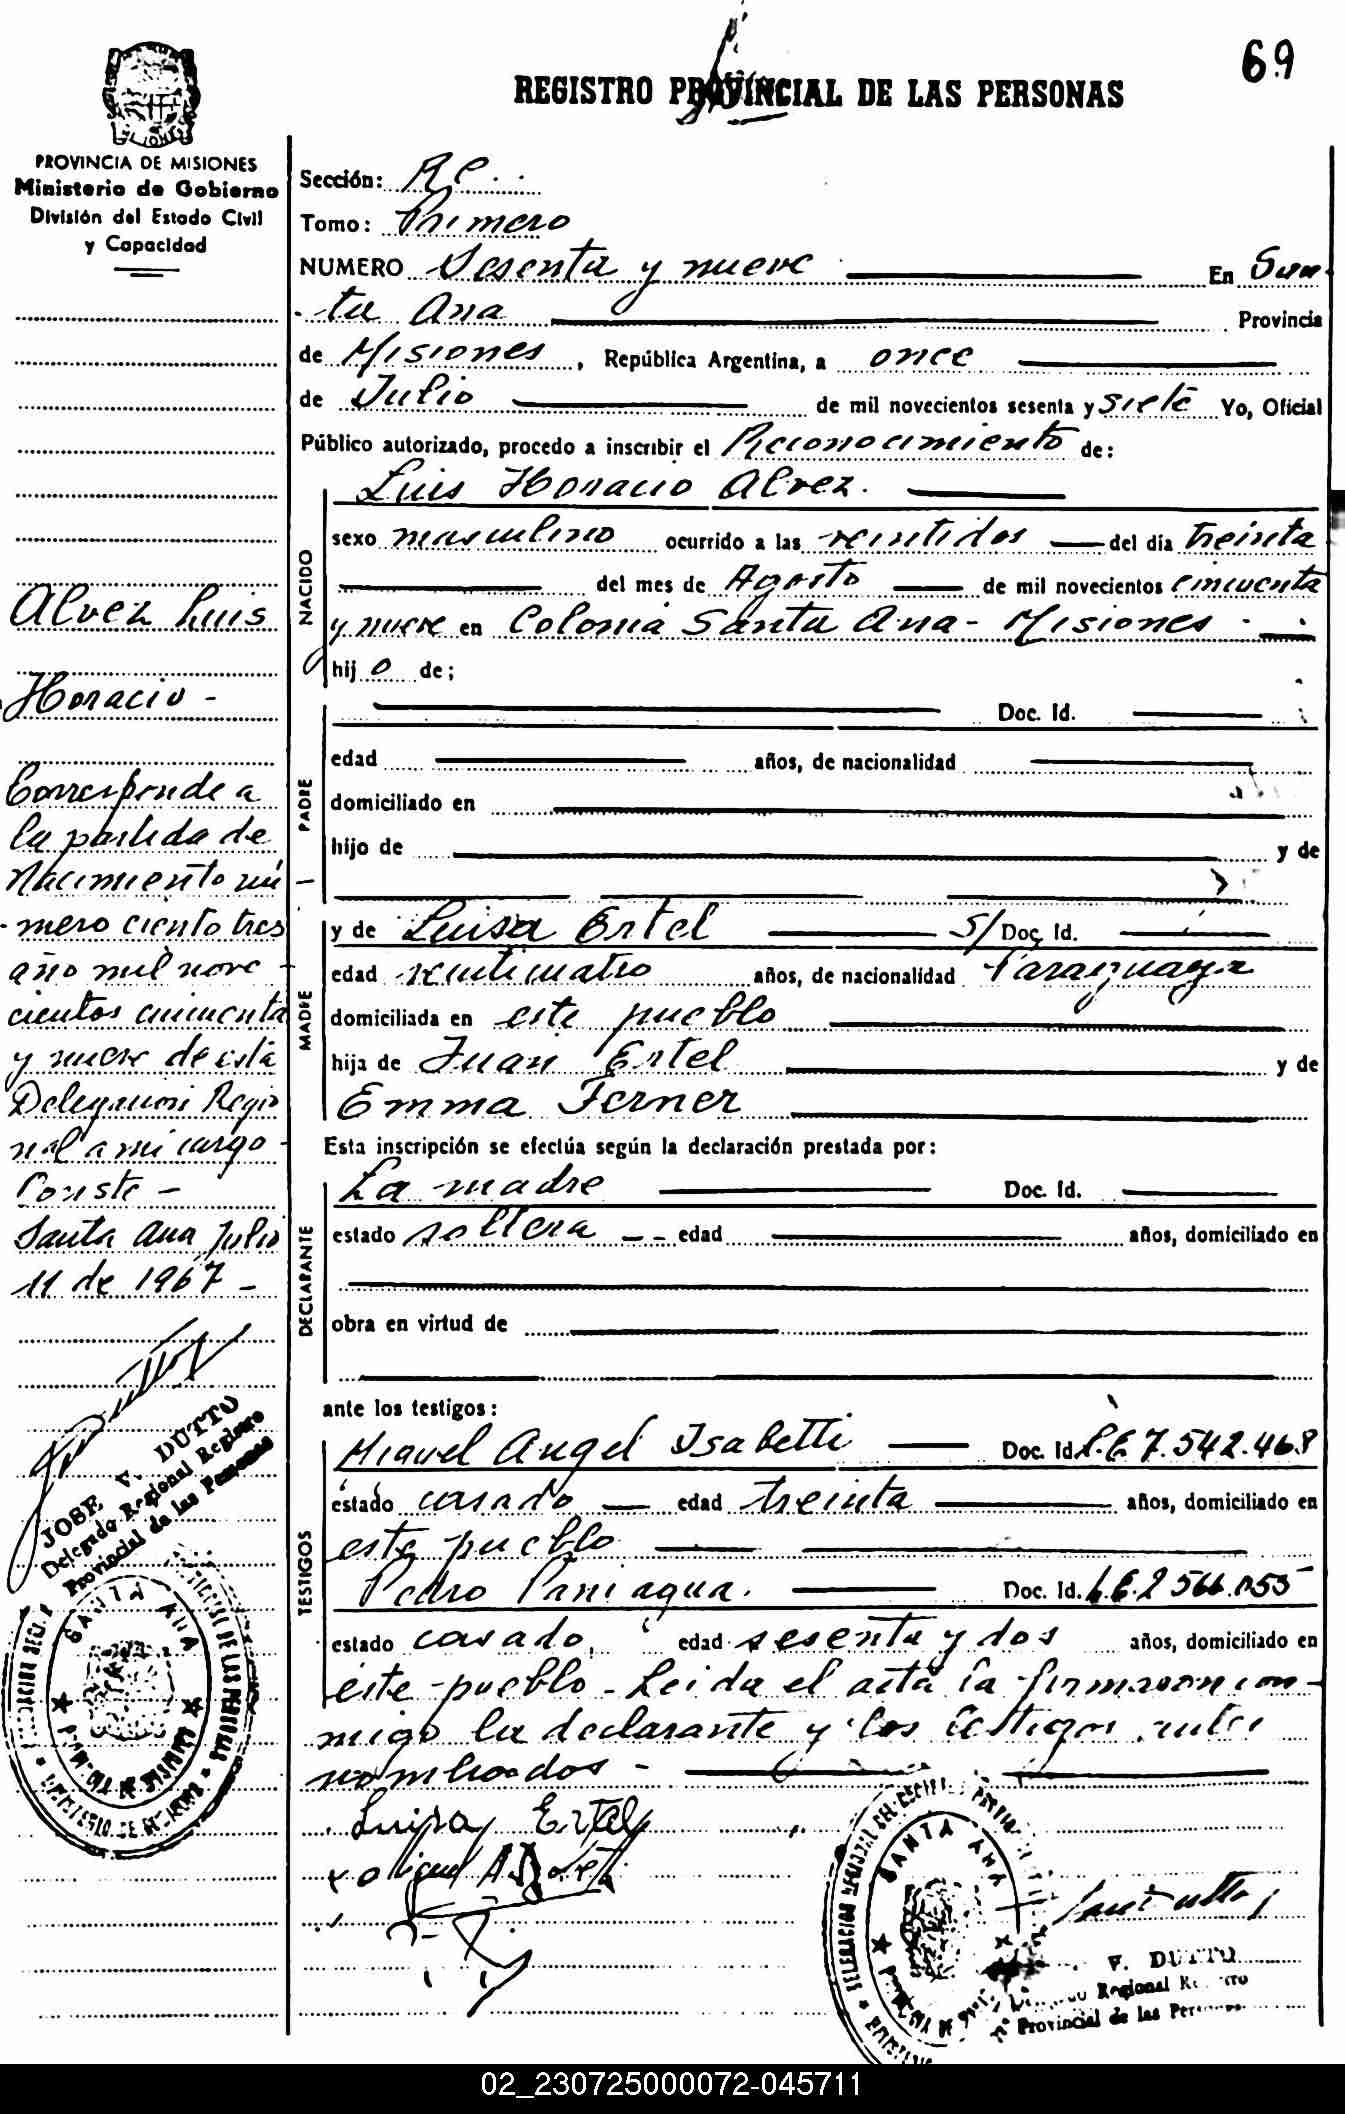 69
REGISTRO PROVINCIAL DE LAS PERSONAS
PROVINCIA DE MISIONES
Ministerio de Gobierno
División del Estado Civil
y Capacidad
Alvez Luis
Horacio -
Corresponde a
la partida de
Nacimiento nú
- mero ciento tres
año mil nove -
cientos cincuenta
y nueve de esta
Delegación Regio
nal a mi cargo -
Conste -
Santa Ana Julio
11 de 1967 -
JOSE V. DUTTO
Delegado Regional Registro
Provincial de las Personas
SANTA ANA
Sección: R.C.
Tomo: Primero
NUMERO Sesenta y nueve En San-
ta Ana Provincia
de Misiones, República Argentina, a once
de Julio de mil novecientos sesenta y siete Yo, Oficial
Público autorizado, procedo a inscribir el Reconocimiento de:
Luis Horacio Alvez.
NACIDO
sexo masculino ocurrido a las veintidos del día treinta
del mes de Agosto de mil novecientos cincuenta
y nueve en Colonia Santa Ana - Misiones
hijo de;
PADRE
Doc. Id.
edad años, de nacionalidad
domiciliado en
hijo de y de
MADRE
y de Luisa Ertel S/ Doc. Id.
edad veinticuatro años, de nacionalidad Paraguaya
domiciliada en este pueblo
hija de Juan Ertel y de
Emma Ferner
Esta inscripción se efectúa según la declaración prestada por:
DECLARANTE
La madre Doc. Id.
estado soltera -- edad años, domiciliado en
obra en virtud de
ante los testigos:
TESTIGOS
Miguel Angel Isabetti Doc. Id. L.E 7.542.468
estado casado edad treinta años, domiciliado en
este pueblo
Pedro Paniagua. Doc. Id. L.E.2 566.055
estado casado, edad sesenta y dos años, domiciliado en
este pueblo - Leida el acta la firmaron con-
migo la declarante y los testigos antes
nombrados -
Luisa Ertel
SANTA ANA
V. DUTTO
Regional
Provincial de las
02_230725000072-045711